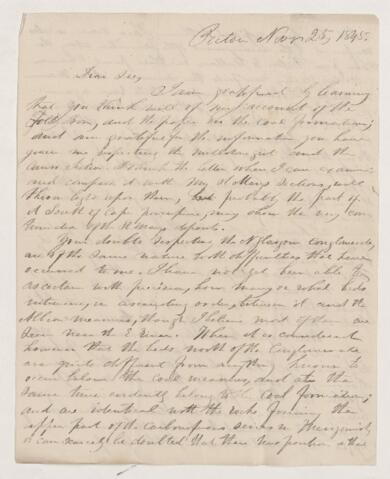 Pictou Nov 25, 1845.
Dear Sir,
I am gratified by learning
that you think well of my account of the
and the paper on the coal formation;
and am grateful for the information you have
given me respecting the and the
section. the latter when I can examine
and compare it with my sections, will
throw light upon them, but probably the part of
it South of Cape may show the very
of the
Your doubts respecting the N Glasgow Conglomerate,
are of the same nature with difficulties that have
occurred to me. I have not yet been able to
ascertain with precision, how many or what beds
intervene, in ascending order, between it and the
Albion measures, though I believe most of them are
seen near the E River. When it is considered
however that the beds north of the Conglomerate
are quite different from anything known to
occur below the coal measures, and at the
same time evidently belong to the coal formation;
and are identical with the rocks forming the
upper part of the carboniferous series in
it can scarcely be doubted that their true position is that